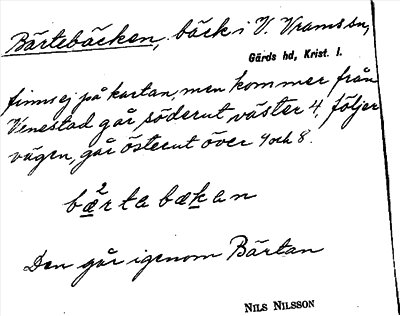 Bärtebäcken, bäck i V. Vrams sn,
Gärds hd, Krist. l.
finns ej på kartan, men kommer från
Venestad går söderut väster 4, följer
vägen, går österut över 4 och 8.
2
bærtabækan
Den går igenom Bärtan
NILS NILSSON